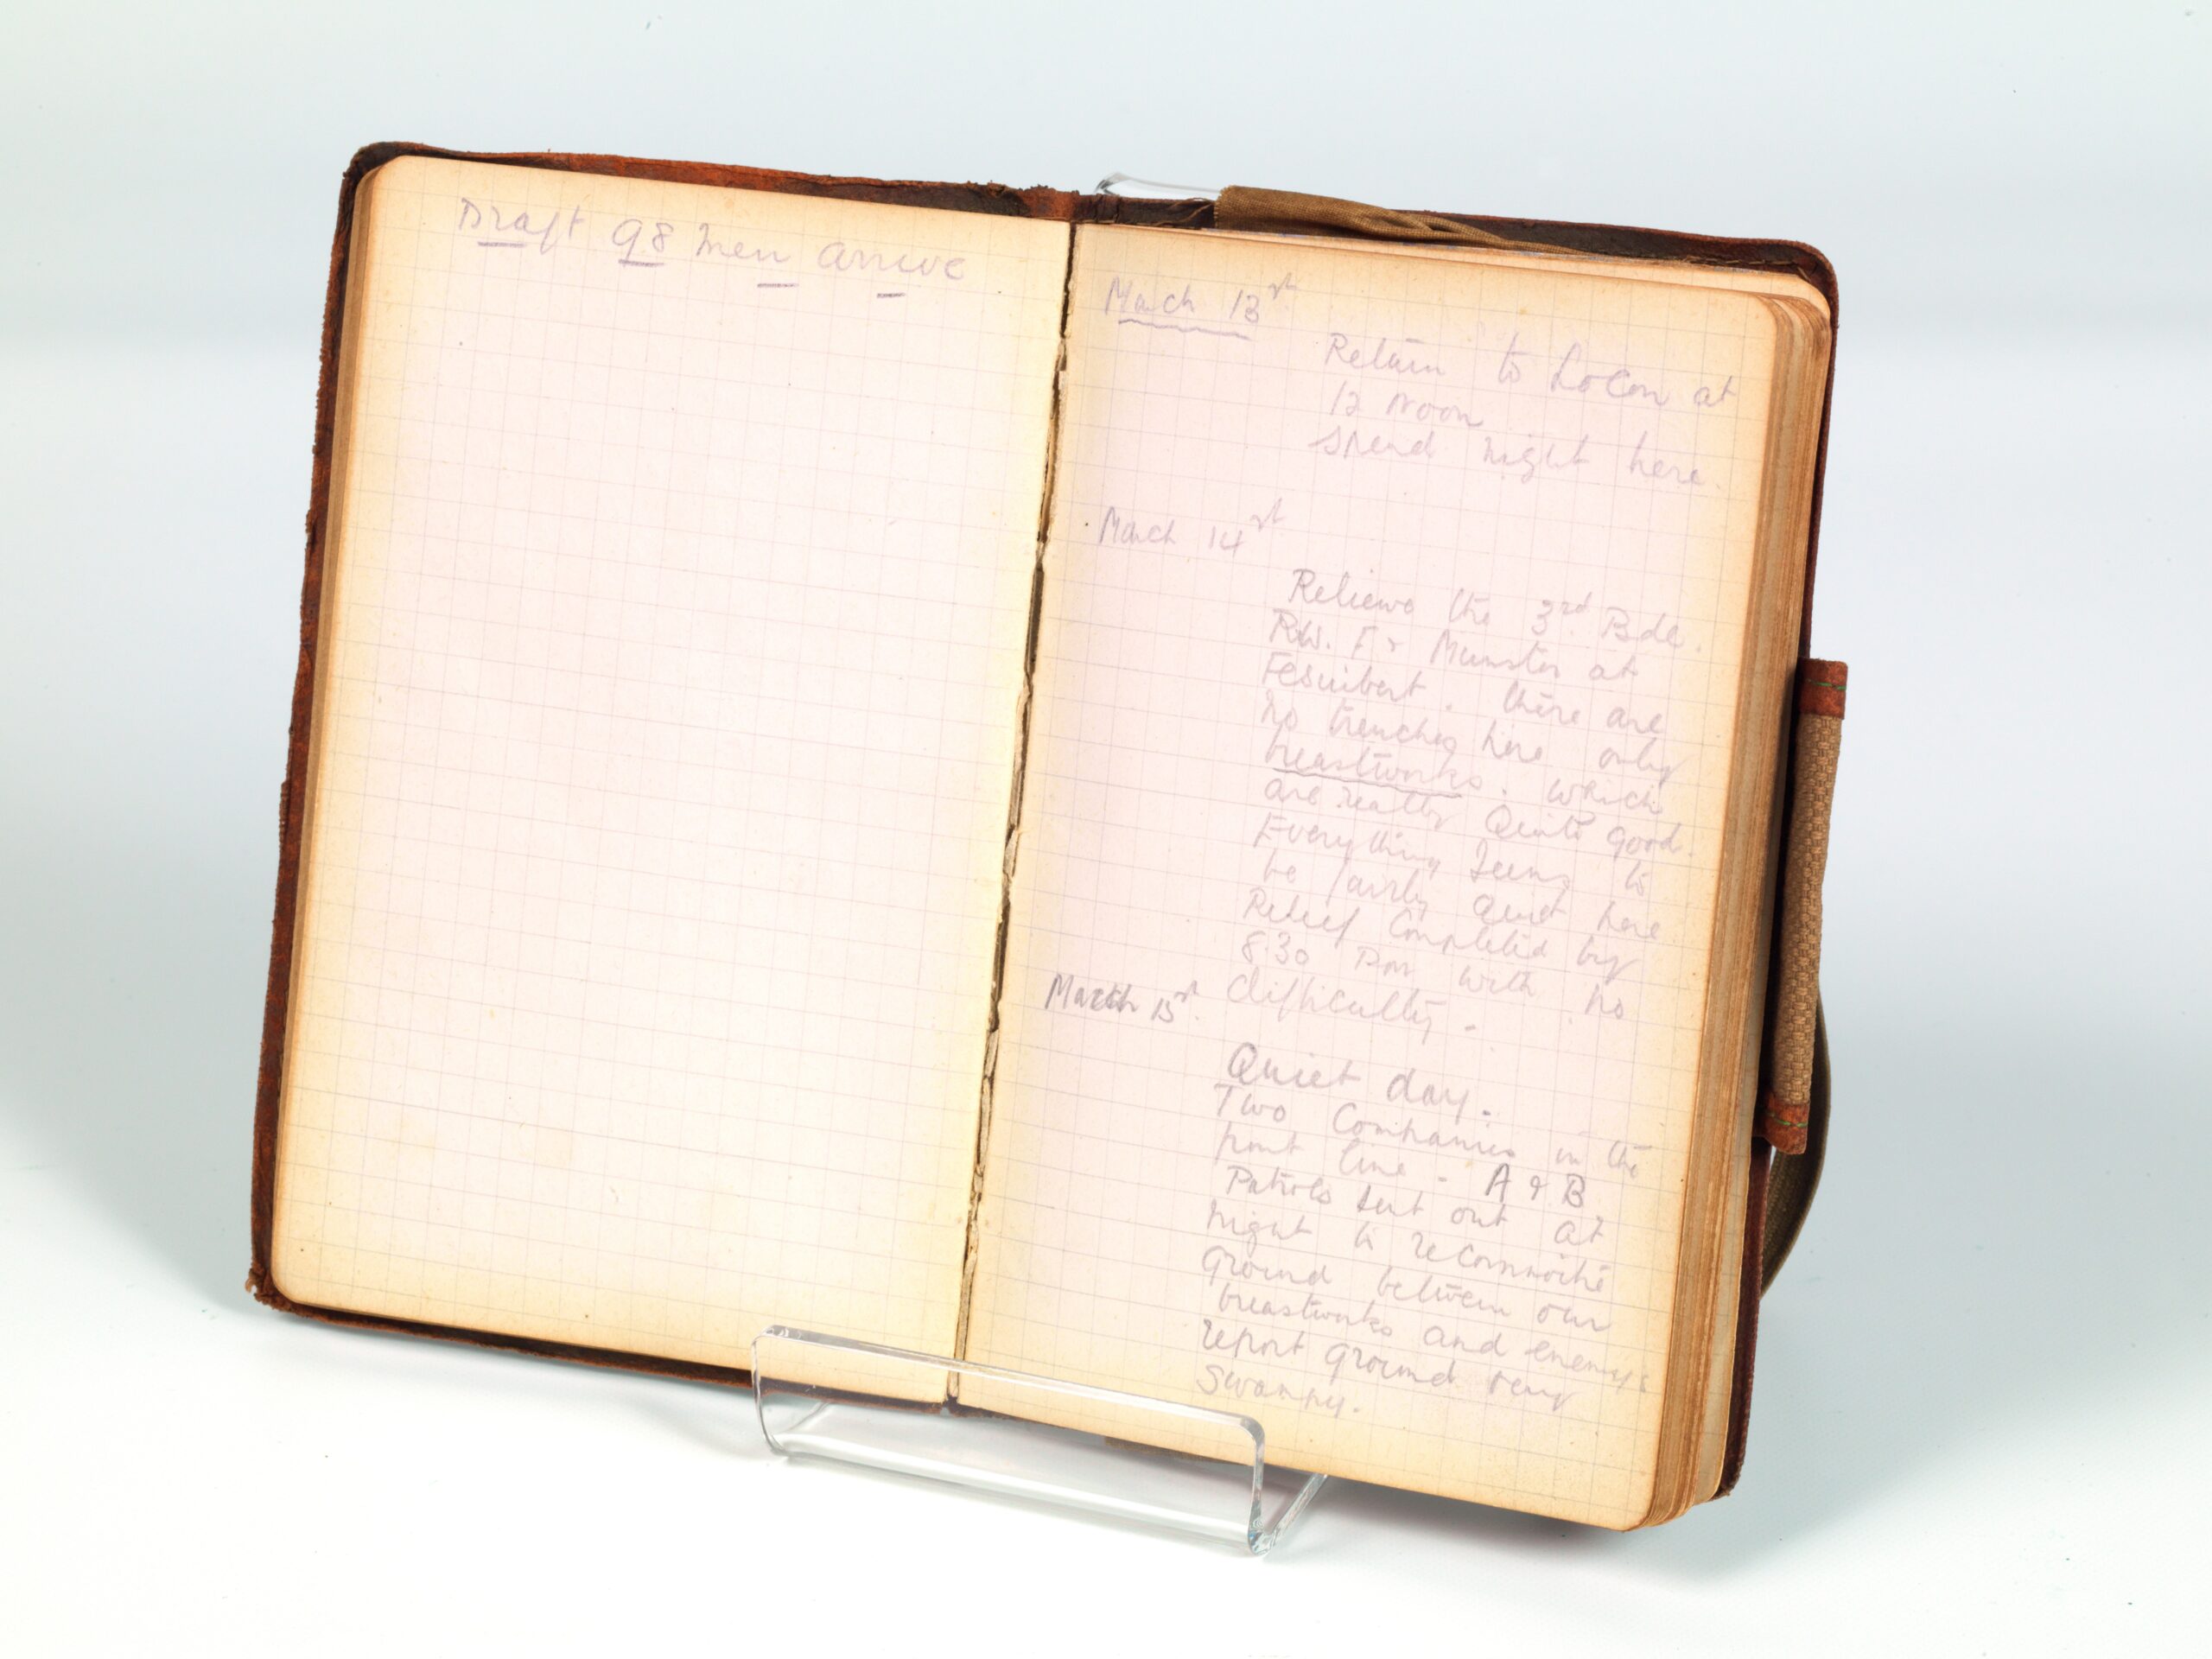 Draft 98 men arrive
March 13th
Return to Locon at
12 noon
spend night here.
March 14th
Relieve the 3rd Bde.
R.W. F & Munster at
Festubert. There are
no trenches here only
breastworks. which
are really quite good.
Everything seems to
be fairly quiet here
Relief completed by
8.30 pm with no
difficulty.
March 15th.
Quiet day.
Two Companies in the
front line - A & B.
Patrols sent out at
night to reconnoitre
ground between our
breastworks and enemys
report ground very
swampy.